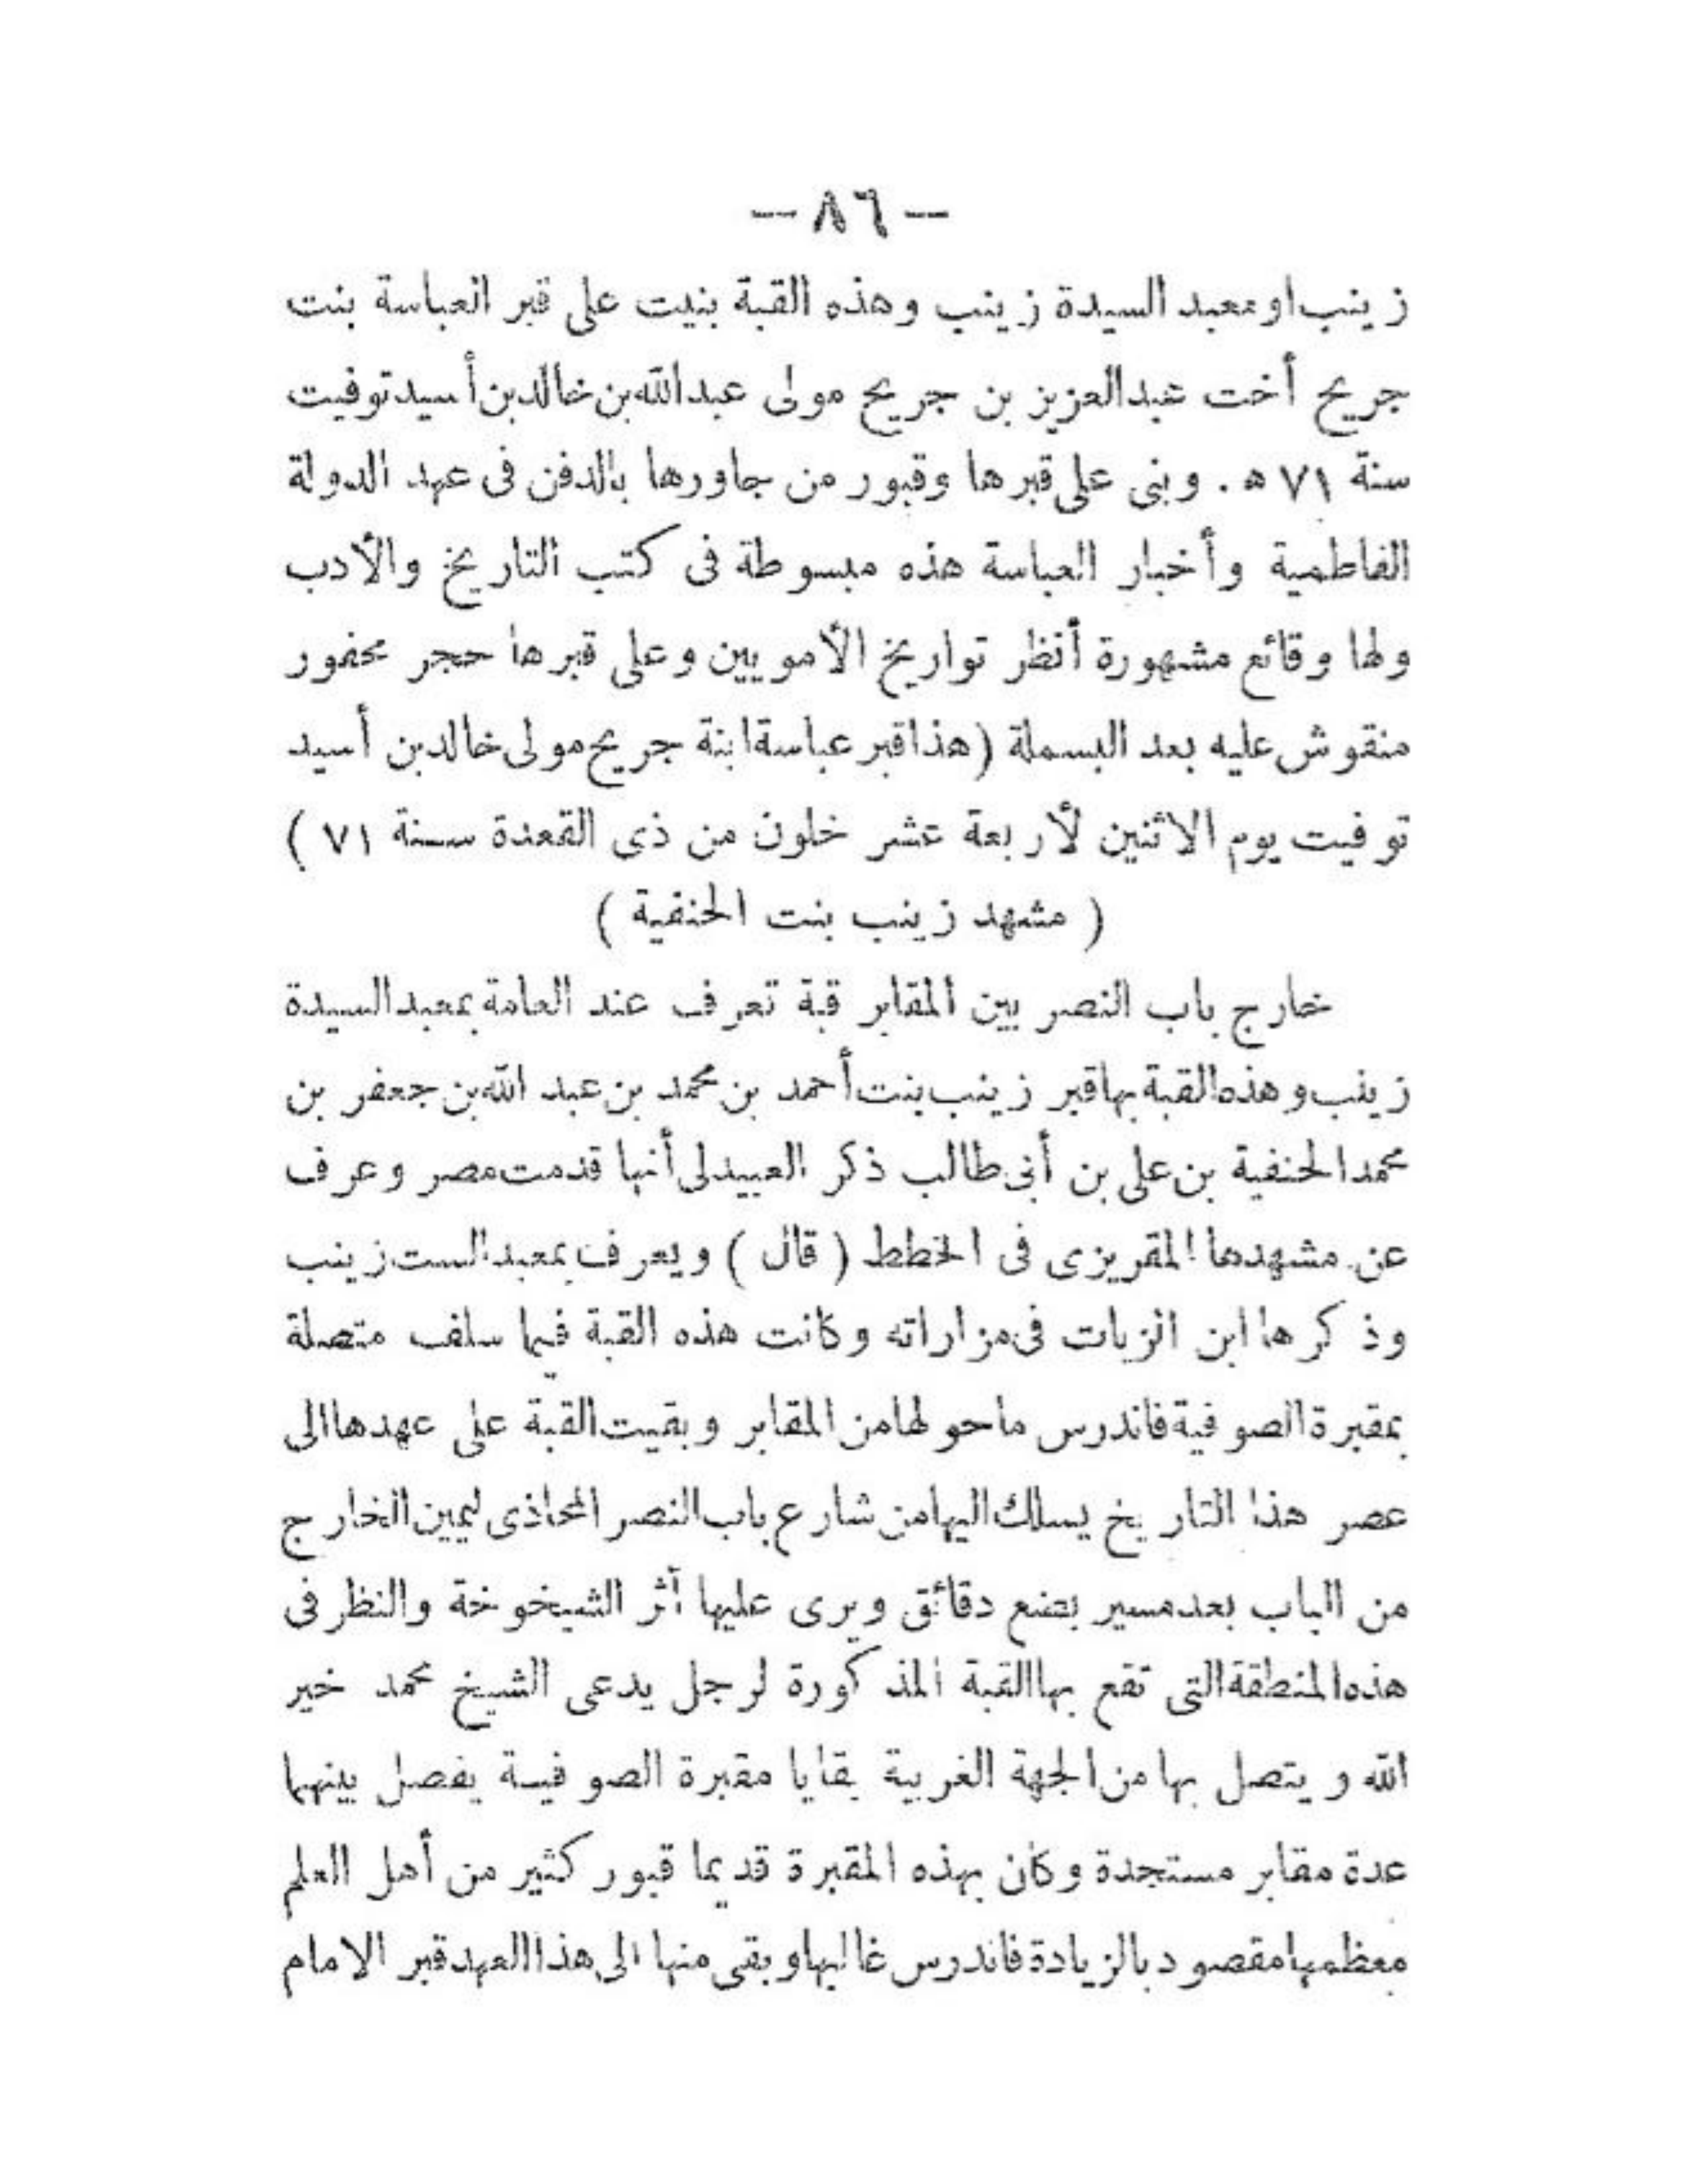 — ٨٦ —
زينب او معبد السيدة زينب وهذه القبة بنيت على قبر العباسة بنت
جريج أخت عبد العزيز بن جريج مولى عبد الله بن خالد بن أسيد توفيت
سنة ٧١ ه . وبنى على قبرها وقبور من جاورها بالدفن فى عهد الدولة
الفاطمية وأخبار العباسة هذه مبسوطة فى كتب التاريخ والأدب
ولها وقائع مشهورة أنظر تواريخ الأمويين وعلى قبرها حجر محفور
منقوش عليه بعد البسملة ( هذا قبر عباسة ابنة جريج مولى خالد بن أسيد
توفيت يوم الاثنين لأربعة عشر خلون من ذى القعدة سنة ٧١ )
( مشهد زينب بنت الحنفية )
خارج باب النصر بين المقابر قبة تعرف عند العامة بمعبد السيدة
زينب وهذه القبة بها قبر زينب بنت أحمد بن محمد بن عبد الله بن جعفر بن
محمد الحنفية بن على بن أبى طالب ذكر العبيدلى أنها قدمت مصر وعرف
عن مشهدها المقريزى فى الخطط ( قال ) ويعرف بمعبد الست زينب
وذكرها ابن الزيات فى مزاراته وكانت هذه القبة فيما سلف متصلة
بمقبرة الصوفية فاندرس ما حولها من المقابر وبقيت القبة على عهدها الى
عصر هذا التاريخ يسلك اليها من شارع باب النصر المحاذى ليمين الخارج
من الباب بعد مسير بضع دقائق ويرى عليها أثر الشيخوخة والنظر فى
هذه المنطقة التى تقع بها القبة المذكورة لرجل يدعى الشيخ محمد خير
الله ويتصل بها من الجهة الغربية بقايا مقبرة الصوفية يفصل بينهما
عدة مقابر مستجدة وكان بهذه المقبرة قديما قبور كثير من أهل العلم
معظمها مقصود بالزيادة فاندرس غالبها وبقى منها الى هذا العهد قبر الامام